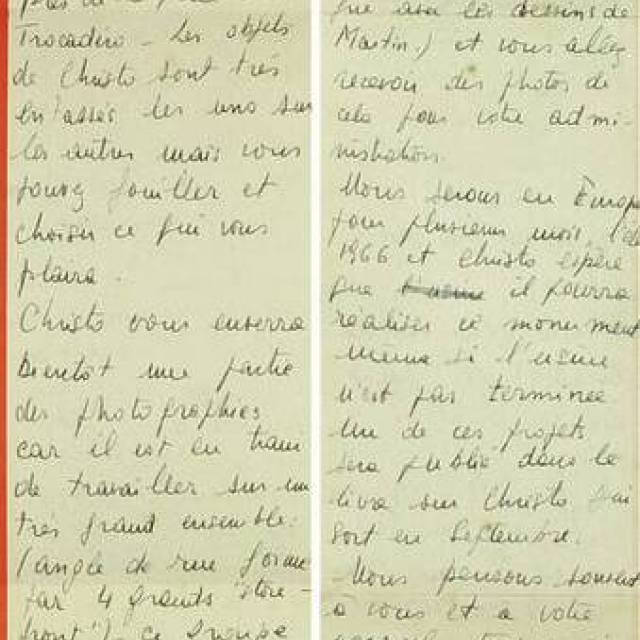 Trocadero - Les objets
de Christo sont très
entassés les uns sur
les autres mais vous
pouvez fouiller et
choisir ce qui vous
plaira.
Christo vous enverra
bientôt une partie
des photographies
car il est en train
de travailler sur un
très grand ensemble:
(angle de rue formé
par 4 grands "store-
front") ce groupe
que avec les dessins de
Martin.) et vous allez
recevoir des photos de
cela pour votre admi-
nistration.
Nous serons en Europe
pour plusieurs mois,
1966 et Christo espère
que il pourra
réaliser ce monument
même si l'usine
n'est pas terminée
Un de ces projets
sera publié dans le
livre sur Christo qui
sort en Septembre.
Nous pensons souvent
à vous et à votre